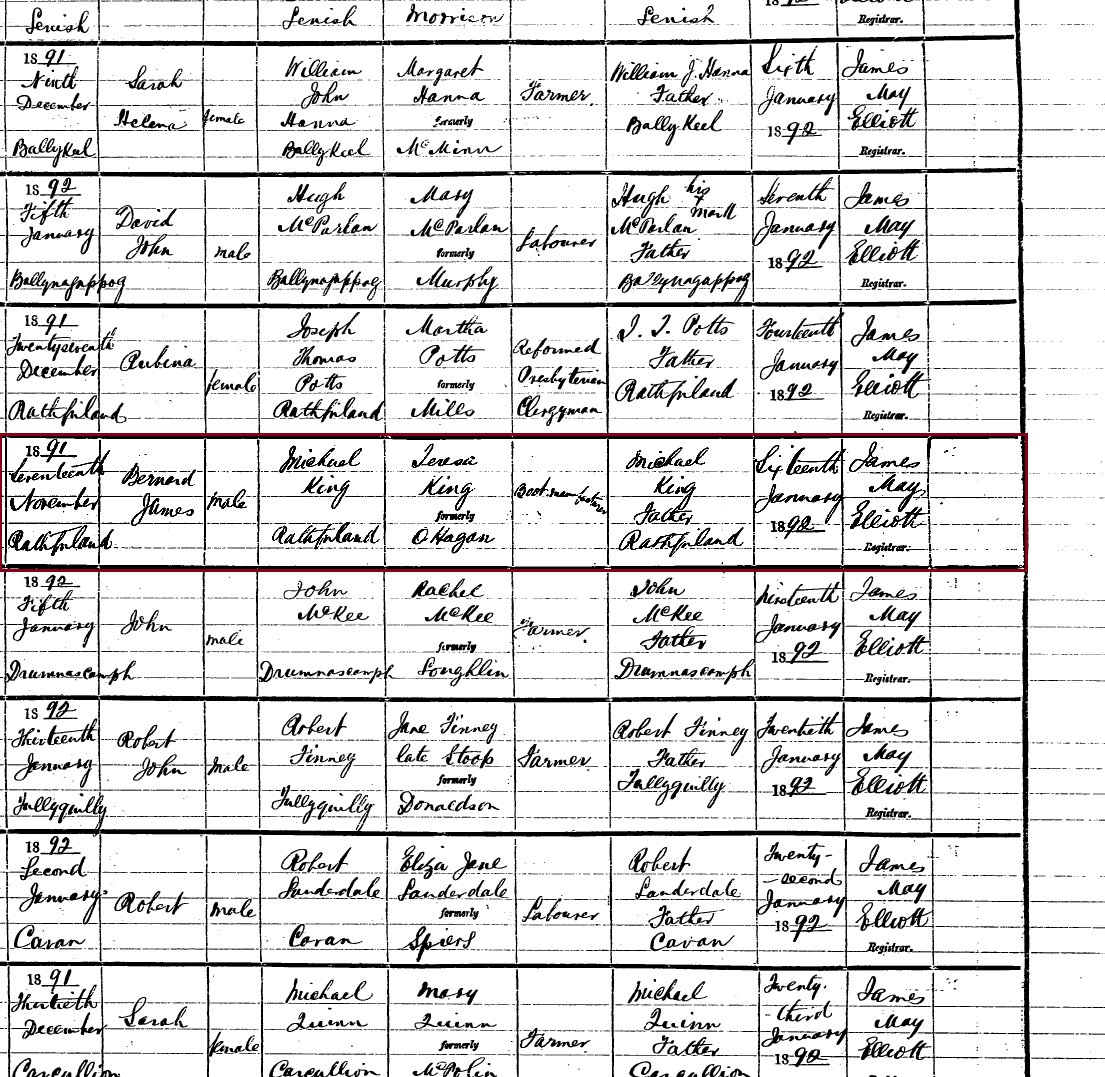 Lenish
Lenish
Morrison
Lenish
Registrar.
1891
Ninth
December
Ballykeel
Sarah
Helena
female
William
John
Hanna
Ballykeel
Margaret
Hanna
formerly
McMinn
Farmer.
William J. Hanna
Father
Ballykeel
Sixth
January
1892
James
May
Elliott
Registrar.
1892
Fifth
January
Ballynagappog
David
John
male
Hugh
McParlan
Ballynagappog
Mary
McParlan
formerly
Murphy
Labourer
Hugh his
x mark
McParlan
Father
Ballynagappog
Seventh
January
1892
James
May
Elliott
Registrar.
1891
Twentyseventh
December
Rathfriland
Rubina
female
Joseph
Thomas
Potts
Rathfriland
Martha
Potts
formerly
Mills
Reformed
Presbyterian
Clergyman
J. T. Potts
Father
Rathfriland
Fourteenth
January
1892
James
May
Elliott
Registrar.
1891
Seventeenth
November
Rathfriland
Bernard
James
male
Michael
King
Rathfriland
Teresa
King
formerly
O'Hagan
Boot manufacturer
Michael
King
Father
Rathfriland
Sixteenth
January
1892
James
May
Elliott
Registrar.
1892
Fifth
January
Drumnascamph
John
male
John
McKee
Drumnascamph
Rachel
McKee
formerly
Loughlin
Farmer.
John
McKee
Father
Drumnascamph
Nineteenth
January
1892
James
May
Elliott
Registrar.
1892
Thirteenth
January
Tullyquilly
Robert
John
Male
Robert
Finney
Tullyquilly
Jane Finney
late Stoop
formerly
Donaldson
Farmer
Robert Finney
Father
Tullyquilly
Twentieth
January
1892
James
May
Elliott
Registrar.
1892
Second
January
Cavan
Robert
male
Robert
Lauderdale
Cavan
Eliza Jane
Lauderdale
formerly
Spiers
Labourer
Robert
Lauderdale
Father
Cavan
Twenty-
-second
January
1892
James
May
Elliott
Registrar.
1891
Thirtieth
December
Carcullion
Sarah
female
Michael
Quinn
Carcullion
Mary
Quinn
formerly
McPolin
Farmer
Michael
Quinn
Father
Carcullion
Twenty-
-third
January
1892
James
May
Elliott